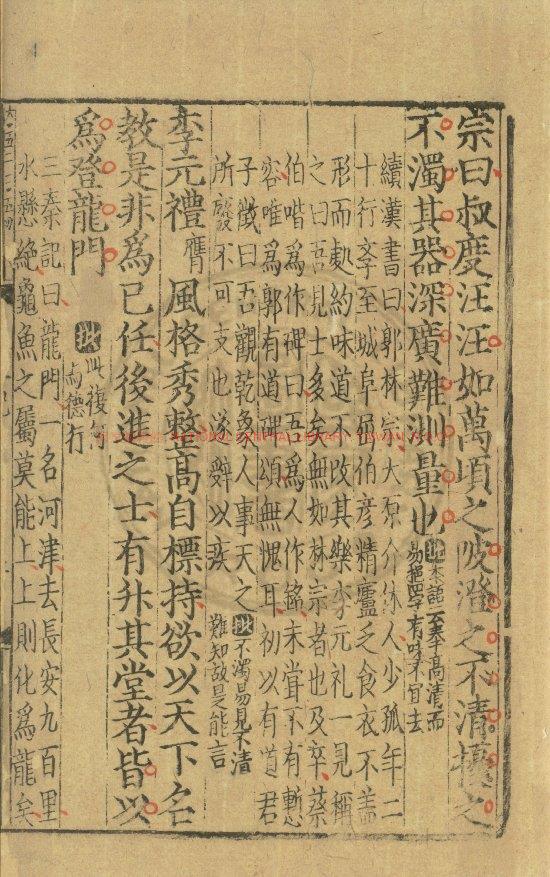 宗曰叔度汪汪如萬頃之陂澄之不清擾之
不濁其器深廣難測量也
續漢書曰郭林宗大原介休人少孤年二
十行孛至城阜屈伯彦精廬乏食衣不盖
形而處約味道不改其樂李元礼一見稱
之曰吾見士多矣無如林宗者也及卒蔡
伯喈為作碑曰吾為人作銘未甞不有慙
容唯為郭有道碑頌無愧耳初以有道君
子徵曰吾觀乾象人事天之
不濁易見不清
難知故是能言
所廢不可支也遂辭以疾
李元禮膺風格秀整高自標持欲以天下名
教是非為己任後進之士有升其堂者皆以
為登龍門
此復何
三秦記曰龍門一名河津去長安九百里
水懸絶龜魚之屬莫能上上則化為龍矣